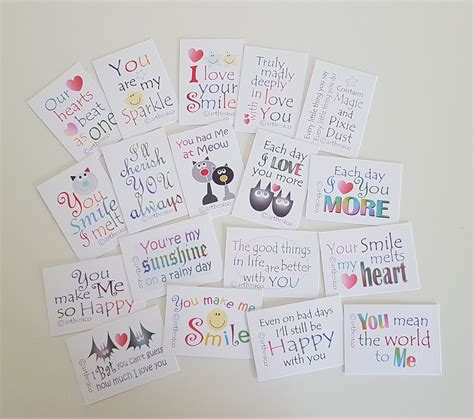 Our
hearts
beat
as one
You
are my
Sparkle
I love
your
Smile
Truly
madly
deeply
in love
with You
Contains
Magic
and
Pixie
Dust
You
Smile
I melt
I'll
cherish
YOU
always
You had Me
at Meow
Each day
I LOVE
you more
Each day
I You
MORE
You
make Me
so Happy
You're my
sunshine
on a rainy day
The good things
in life are
better
with YOU
Your Smile
melts my
heart
I Bat you can't guess
how much I love you
You make me
Smile
Even on bad days
I'll still be
Happy
with you
You mean
the world
to Me